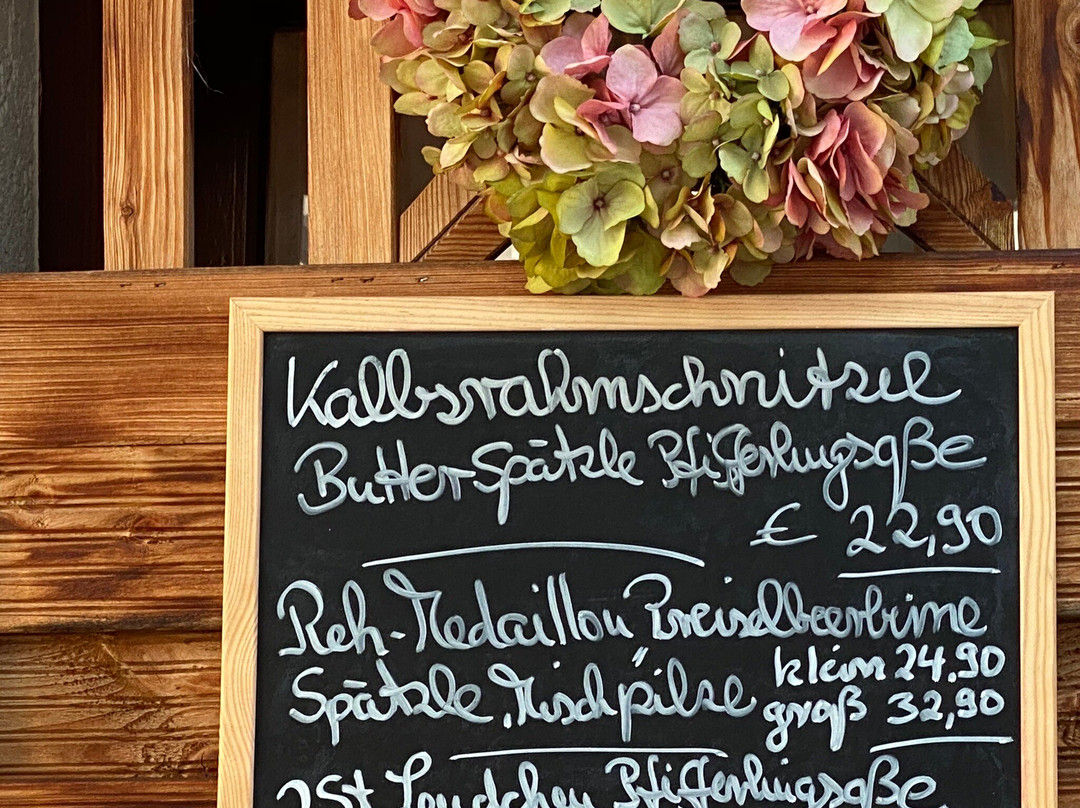 Kalbsrahmschnitzel
Butter Spätzle Pfifferlingsoße
€ 22,90
Reh-Medaillon Preiselbeerbirne
klein 24,90
Spätzle, Mischpilze
groß 32,90
2 St Pfifferlingsoße